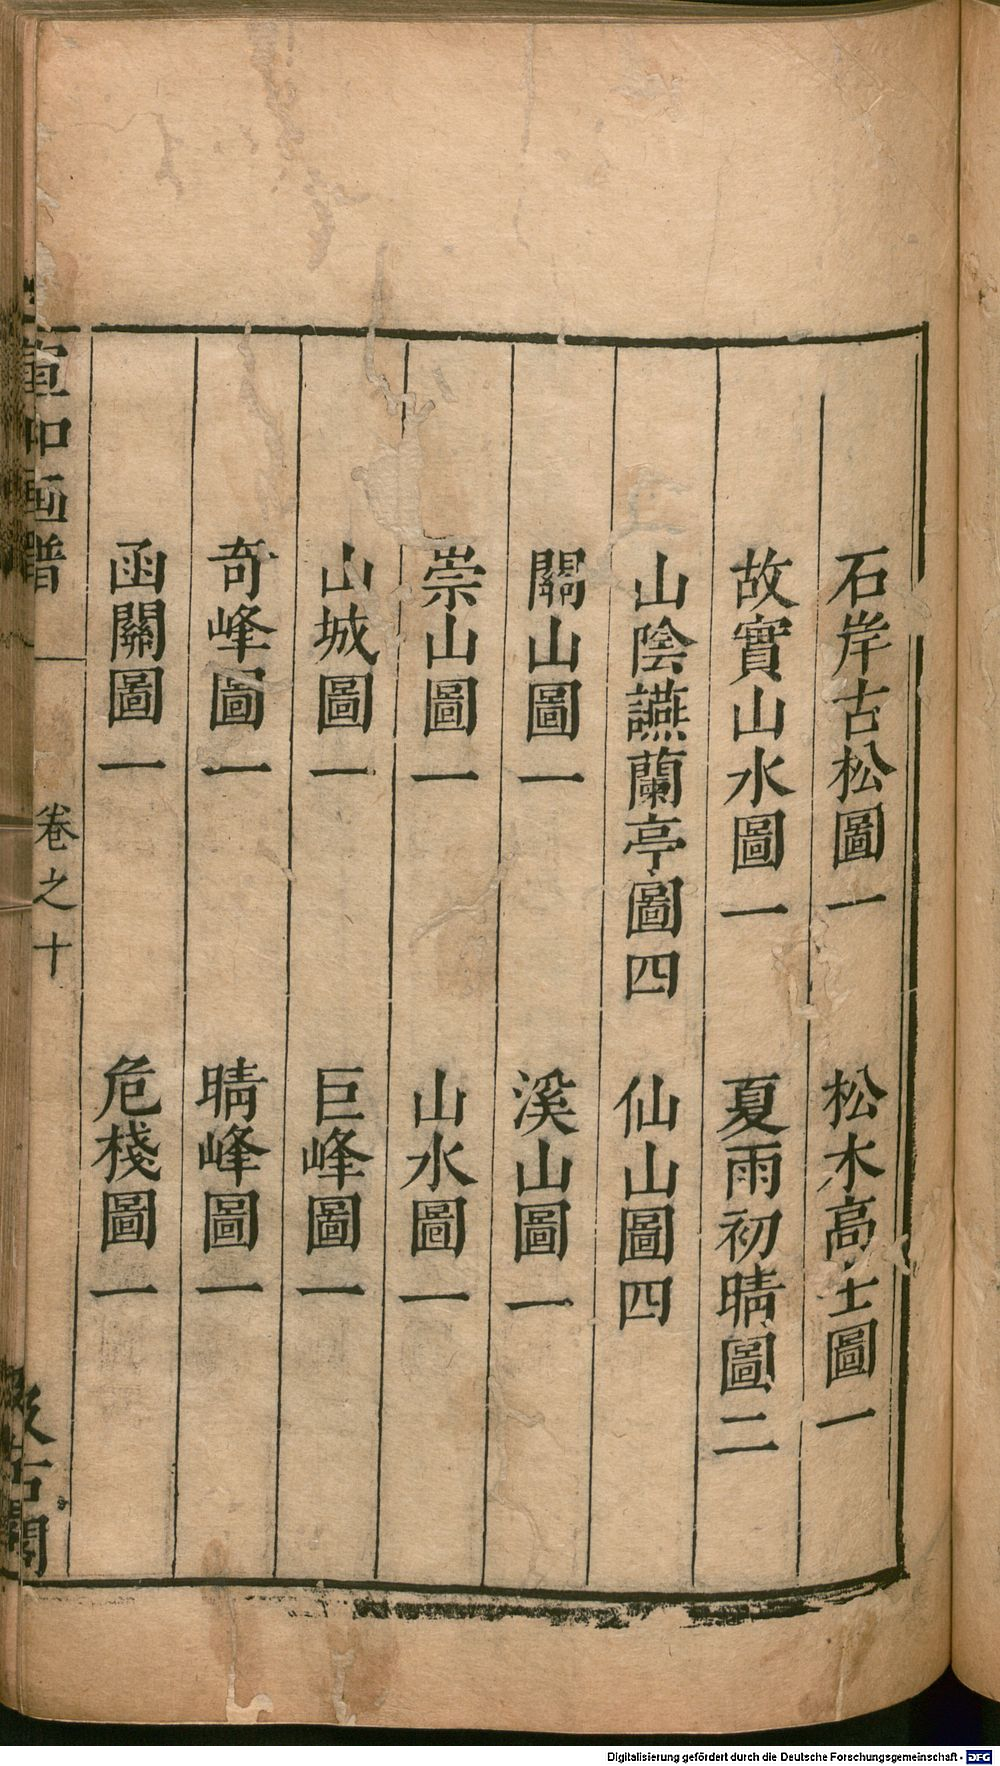 石岸古松圖一　松木高士圖一
故實山水圖一　夏雨初晴圖二
山陰讌蘭亭圖四　仙山圖四
關山圖一　溪山圖一
崇山圖一　山水圖一
山城圖一　巨峰圖一
奇峰圖一　晴峰圖一
函關圖一　危棧圖一
宣和画譜　卷之十　汲古閣
Digitalisierung gefördert durch die Deutsche Forschungsgemeinschaft - DFG